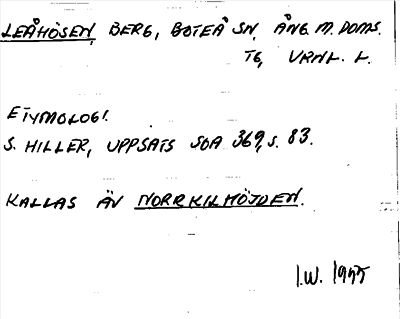 LEÅHÖSEN, BERG, BOTEÅ SN, ÅNG. M. DOMS.
TG, VRNL. L.
ETYMOLOGI.
S. HILLER, UPPSATS SOA 369, S. 83.
KALLAS ÄV NORRKILHÖJDEN.
I.W. 1955